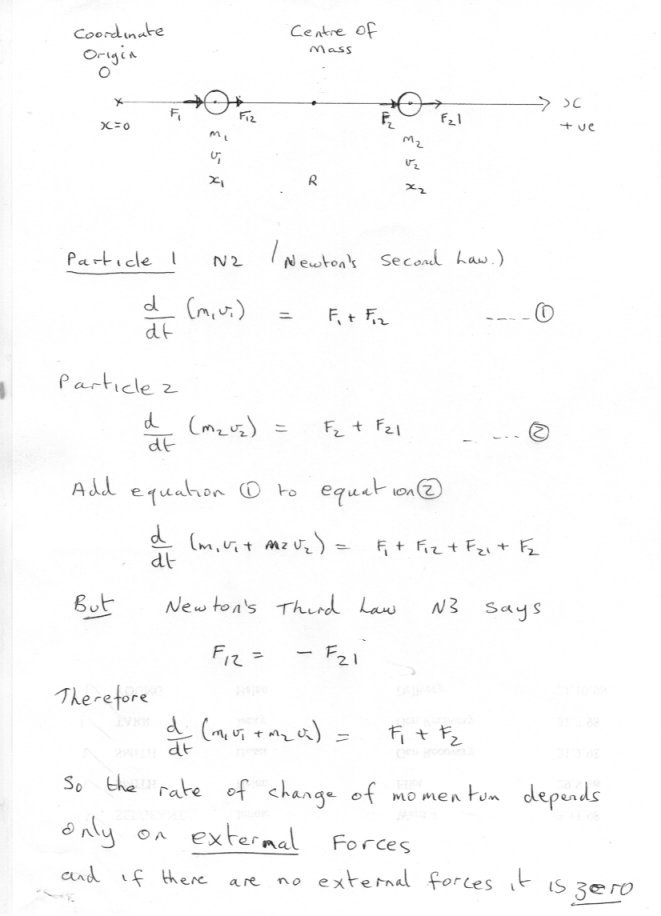 Coordinate Origin O
Centre Of Mass
F₁ F₁₂ F₂ F₂1 x
x=0 +ve
m₁ m₂
v₁ v₂
x₁ R x₂
Particle 1 N2 (Newton's Second Law.)
d/dt (m₁v₁) = F₁ + F₁₂ ----- ①
Particle 2
d/dt (m₂v₂) = F₂ + F₂1 - -... ②
Add equation ① to equation ②
d/dt (m₁v₁ + m2 v₂) = F₁ + F₁₂ + F₂₁ + F₂
But Newton's Third Law N3 says
F₁₂ = - F₂1
Therefore
d/dt (m₁v₁ + m₂v₂) = F₁ + F₂
So the rate of change of momentum depends
only on external Forces
and if there are no external forces it is zero